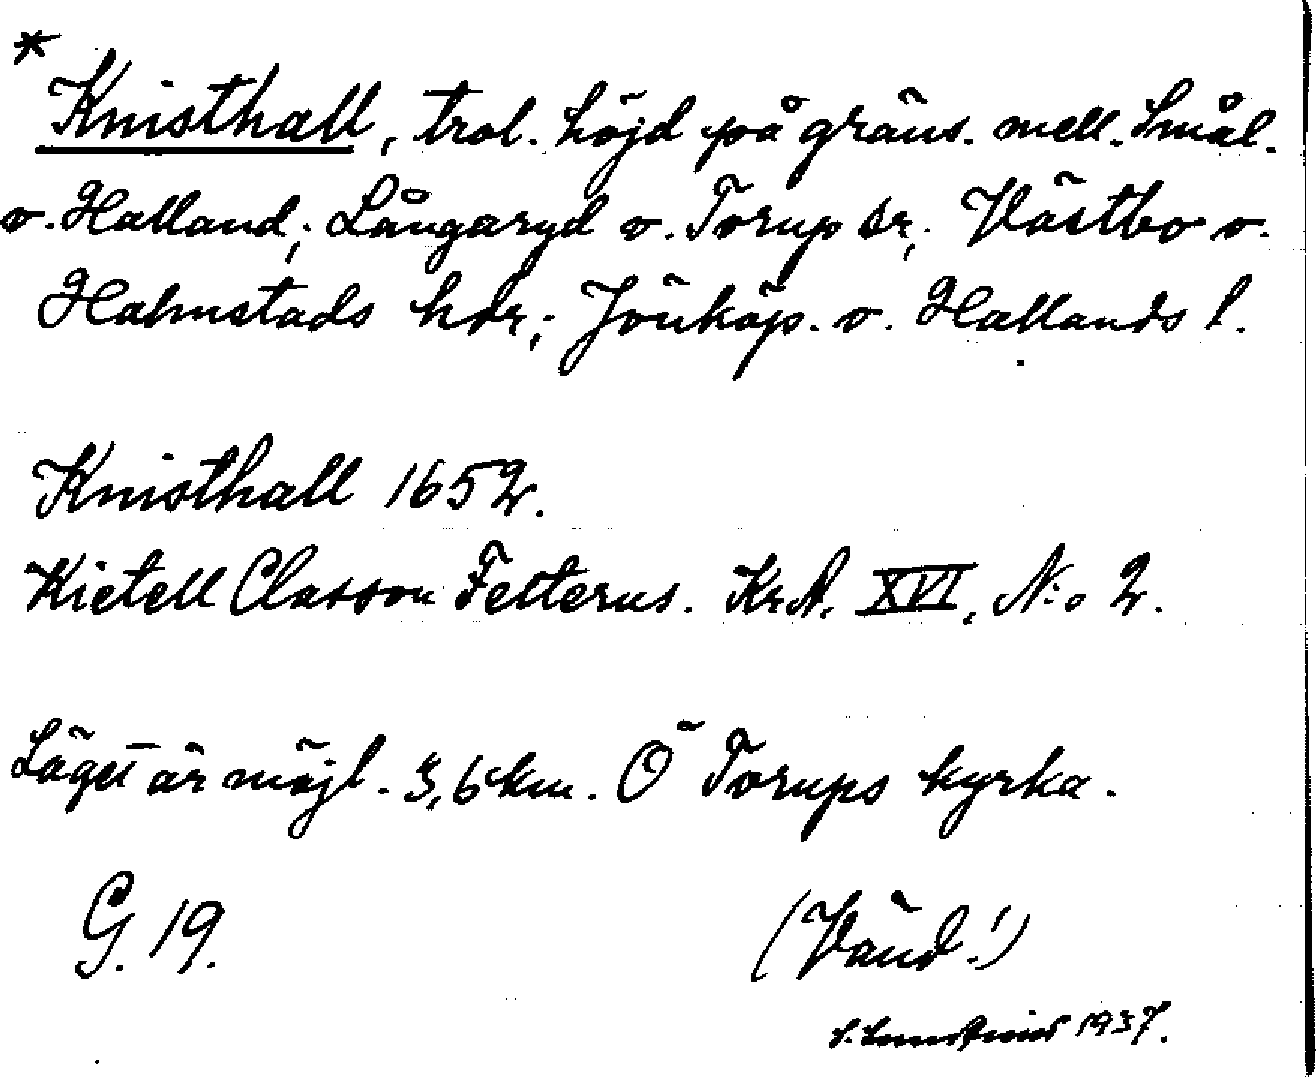 *
Knisthall, trol. höjd på gräns. mell. Smål.
o. Halland; Långaryd o. Torup sr; Västbo o.
Halmstads hdr; Jönköp. o. Hallands l.
Knisthall 1652.
Kietell Classon Felterus. KrA. XVI, N:o 2.
Läget är möjl. 3,6 km. Ö Torups kyrka.
G. 19.
(Vänd!)
1937.